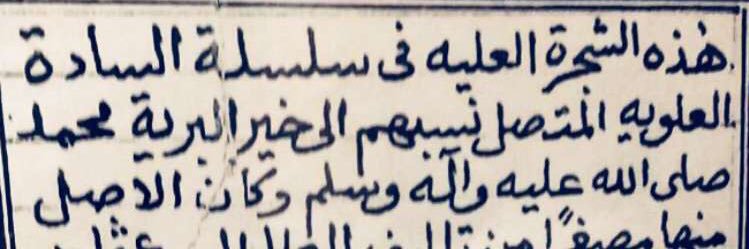 هذه الشجرة العليه فى سلسلة السادة
العلويه المتصل نسبهم الى خير البرية محمد
صلى الله عليه وآله وسلم وكان الاصل
منها مصغرًا من